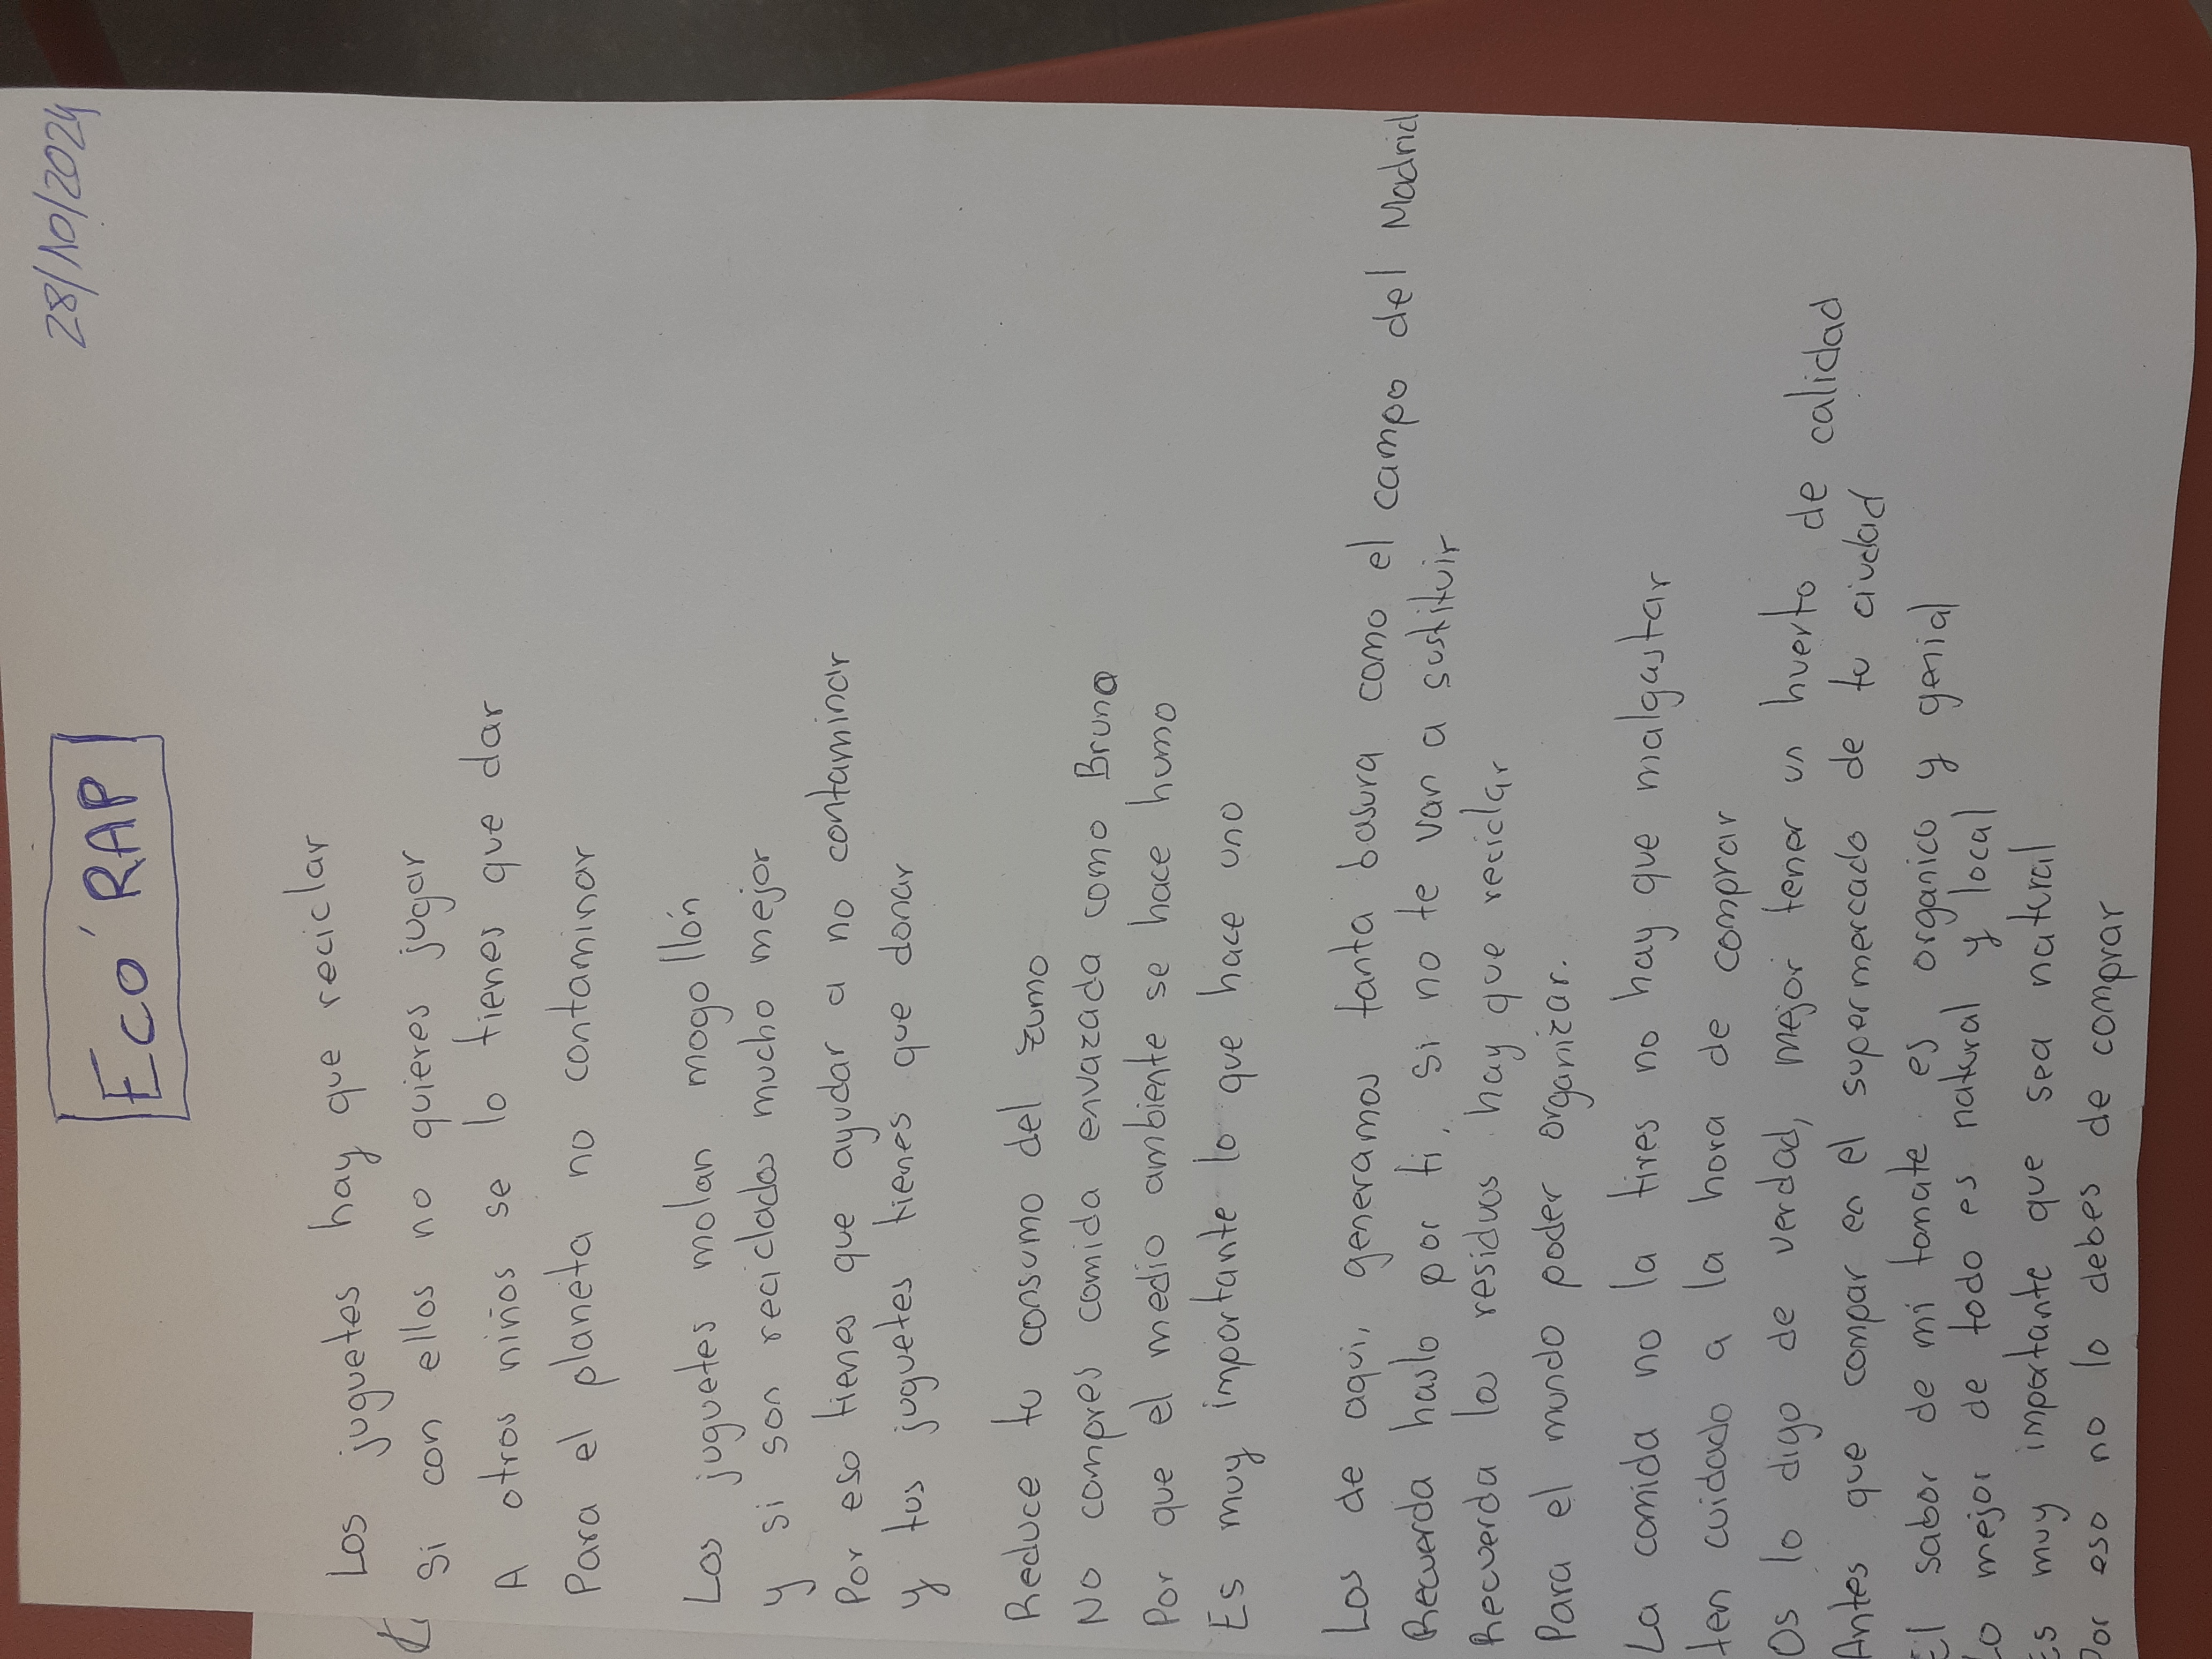 28/10/2024
ECO' RAP
Los juguetes hay que reciclar
Si con ellos no quieres jugar
A otros niños se lo tienes que dar
Para el planeta no contaminar
Los juguetes molan mogollón
y si son reciclados mucho mejor
Por eso tienes que ayudar a no contaminar
y tus juguetes tienes que donar
Reduce tu consumo del zumo
No compres comida envazada como Bruno
Por que el medio ambiente se hace humo
Es muy importante lo que hace uno
Los de aqui, generamos tanta basura como el campo del Madrid
Recuerda haslo por ti, si no te van a sustituir
Recuerda los residuos hay que reciclar
Para el mundo poder organizar.
La comida no la tires no hay que malgastar
ten cuidado a la hora de comprar
Os lo digo de verdad, mejor tener un huerto de calidad
Antes que compar en el supermercado de tu ciudad
El sabor de mi tomate es organico y genial
Lo mejor de todo es natural y local
Es muy importante que sea natural
Por eso no lo debes de comprar